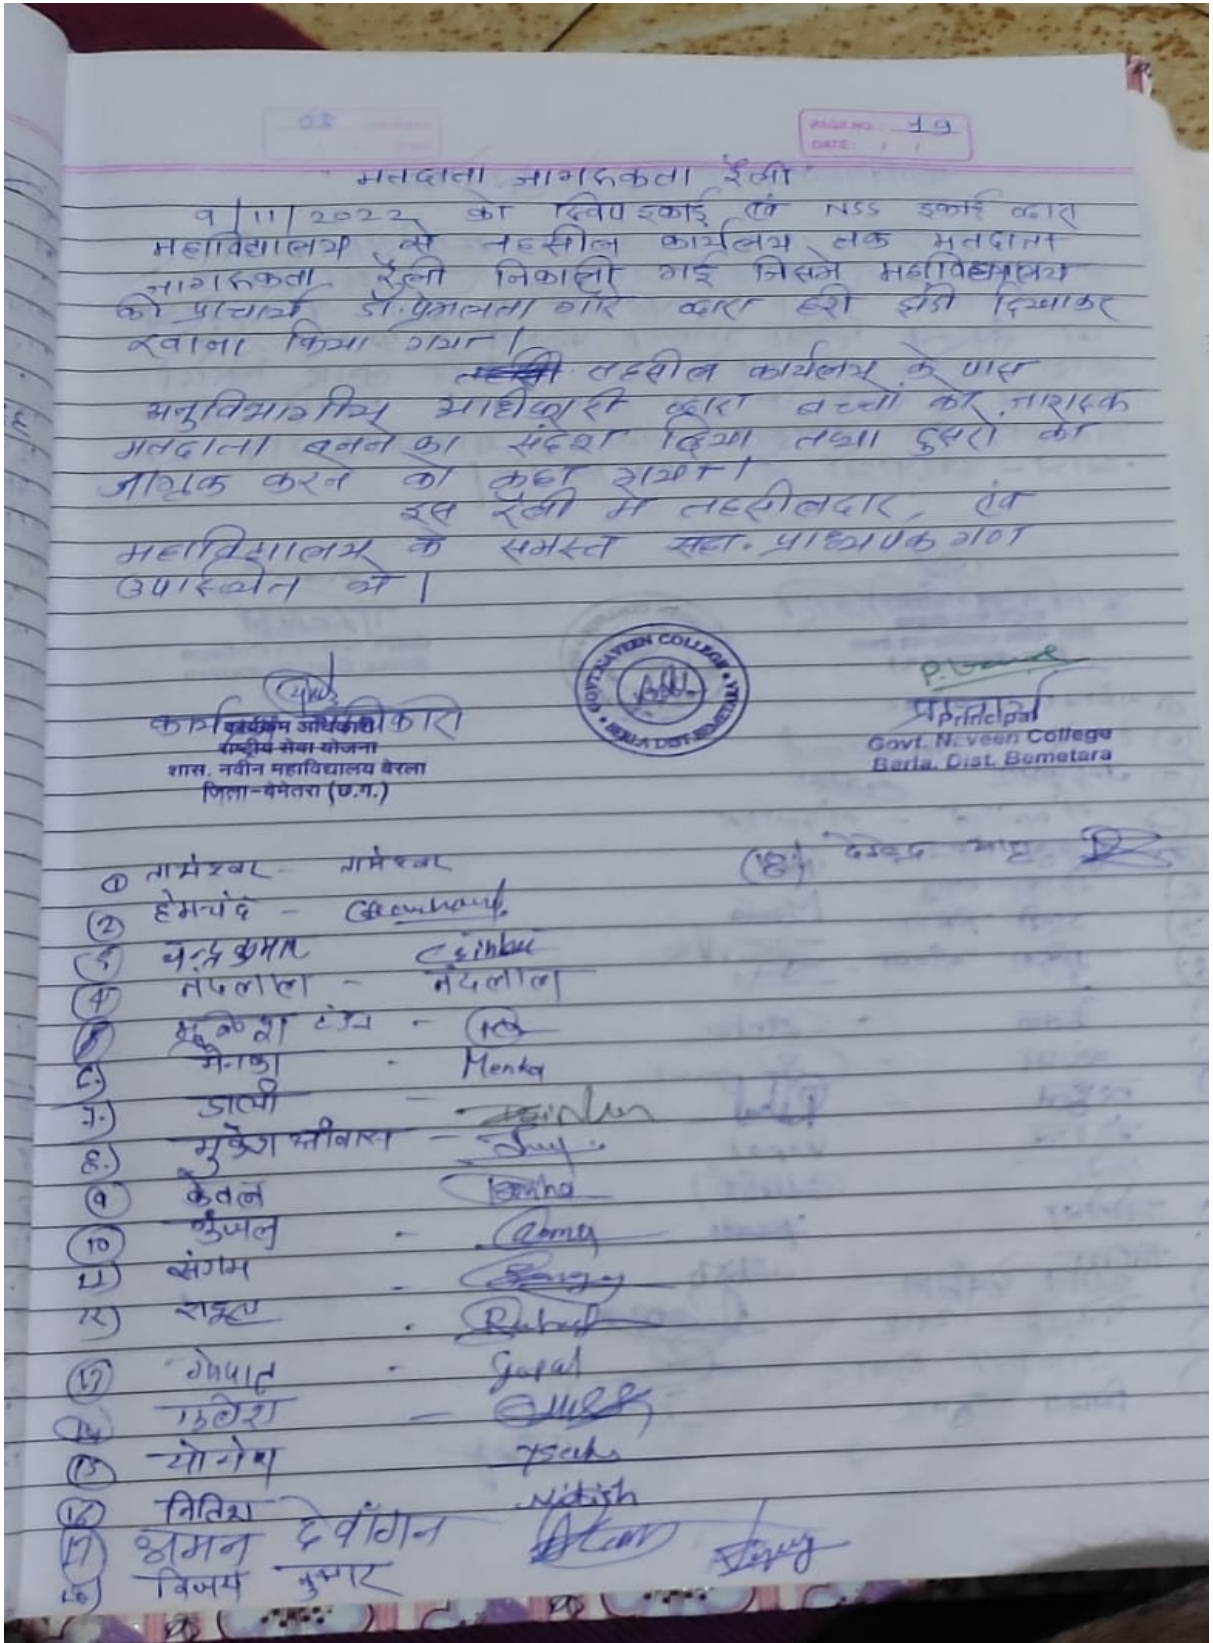 PAGE NO. 19
DATE: / /
"मतदाता जागरूकता रैली"
9/11/2022 को स्विप इकाई एवं NSS इकाई द्वारा
महाविद्यालय से तहसील कार्यलय तक मतदाता
जागरूकता रैली निकाली गई जिसमे महाविद्यालय
की प्राचार्य डॉ. प्रेमलता गौरे द्वारा हरी झंडी दिखाकर
रवाना किया गया।
तहसील कार्यलय के पास
अनुविभागीय अधिकारी द्वारा बच्चों को जागरूक
मतदाता बनने का संदेश दिया तथा दुसरो को
जागृक करने को कहा गया।
इस रैली मे तहसीलदार, एवं
महाविद्यालय के समस्त सहा. प्राध्यापक गण
उपस्थित थे।
GOVT. NAVEEN COLLEGE
BERLA DIST. BEMETARA
P. Gaure
कार्यक्रम अधिकारी
कार्यक्रम अधिकारी
राष्ट्रीय सेवा योजना
शास. नवीन महाविद्यालय बेरला
जिला-बेमेतरा (छ.ग.)
प्राचार्य
Principal
Govt. Naveen College
Berla, Dist. Bemetara
① तामेश्वर - तामेश्वर
② हेमचंद -
चन्द्र कुमार
④ नंदलाल - नंदलाल
मुकेश टंडन -
6.) मेनका - Menka
7.) डाली -
8.) मुकेश श्रीवास -
⑨ केवल
⑩ कुंजल -
11) संगम -
12) राहुल - Rahul
⑬ गोपाल - Gopal
⑭ -
⑮ योगेश
⑯ नितिश Nitish
⑰ अमन देवाँगन
18) विजय कुमार
देवेन्द्र साहू